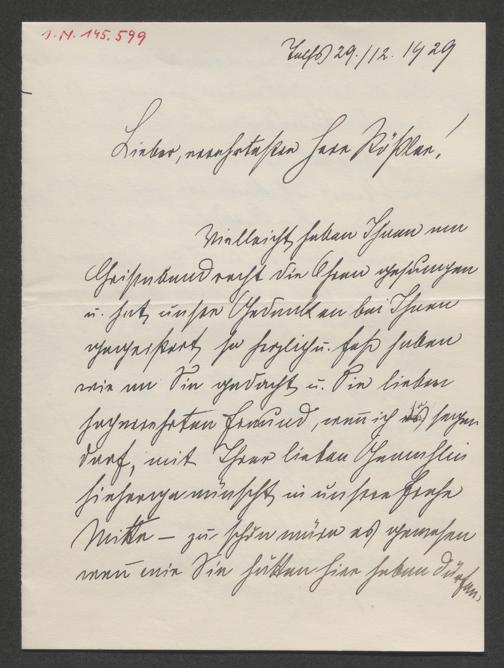 I.N. 145.599
Telfs 29./12. 1929
Lieber, verehrtester Herr Rößler!
Vielleicht haben Ihnen am
Christabend recht die Ohren gesungen
u. hat unser Gedanken bei Ihnen
gegeistert, so herzlich u. fest haben
wir an Sie gedacht u. Sie lieber
hochverehrter Freund, wenn ich so sagen
darf, mit Ihrer lieben Gemahlin
hieher gewünscht in unsere frohe
Mitte – zu schön wäre es gewesen
wenn wir Sie hätten hier haben dürfen,